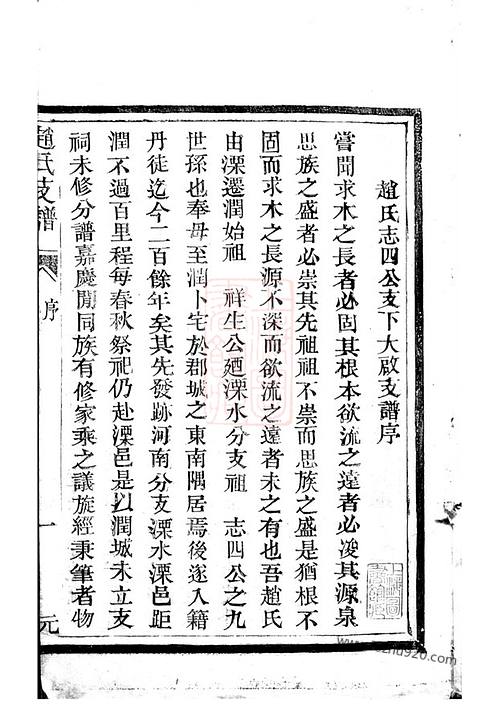 趙氏志四公支下大啟支譜序
嘗聞求木之長者必固其根本欲流之遠者必浚其源泉
思族之盛者必崇其先祖祖不崇而思族之盛是猶根不
固而求木之長源不深而欲流之遠者未之有也吾趙氏
由溧遷潤始祖 祥生公廼溧水分支祖 志四公之九
世孫也奉母至潤卜宅於郡城之東南隅居焉後遂入籍
丹徒迄今二百餘年矣其先發跡河南分支溧水溧邑距
潤不過百里程每春秋祭祀仍赴溧邑是以潤城未立支
祠未修分譜嘉慶間同族有修家乘之議旋經秉筆者物
趙氏支譜 序 一 元